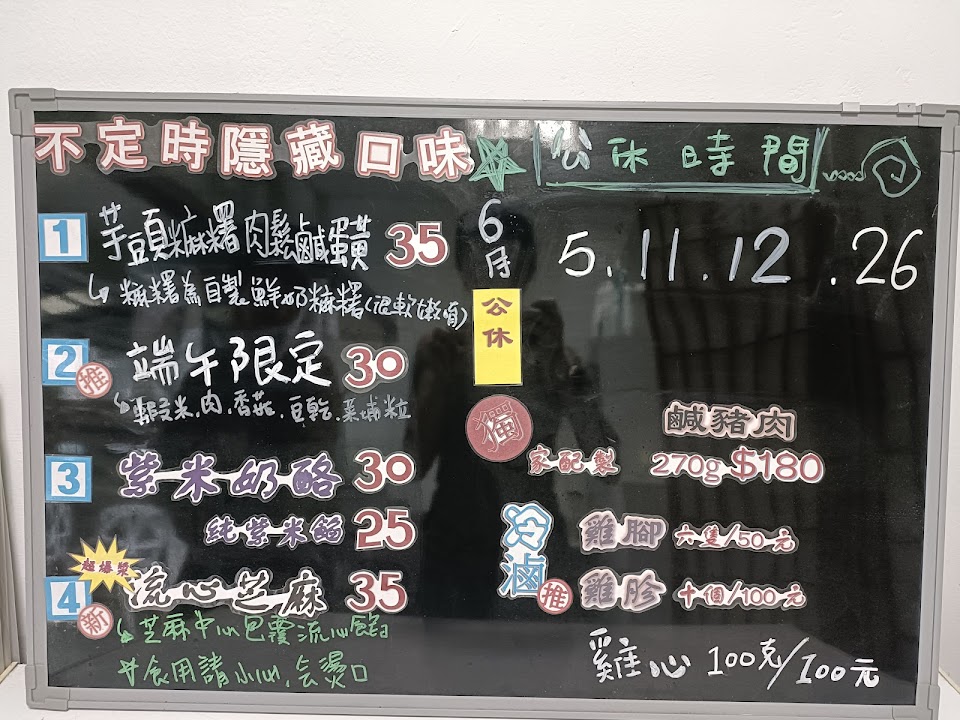 不定時隱藏口味
1 芋頭麻糬肉鬆鹹蛋黃 35
麻糬為自製鮮奶麻糬(很軟嫩唷)
2 推 端午限定 30
蝦米.肉.香菇.豆乾.菜埔粒
3 紫米奶酪 30
純紫米餡 25
超爆漿
4 新 流心芝麻 35
芝麻中心包覆流心餡
食用請小心,会燙口
公休時間
6月 5.11.12.26
公休
獨家配製
鹹豬肉
270g $180
冷滷 推
雞腳 六隻/50元
雞胗 十個/100元
雞心 100克/100元